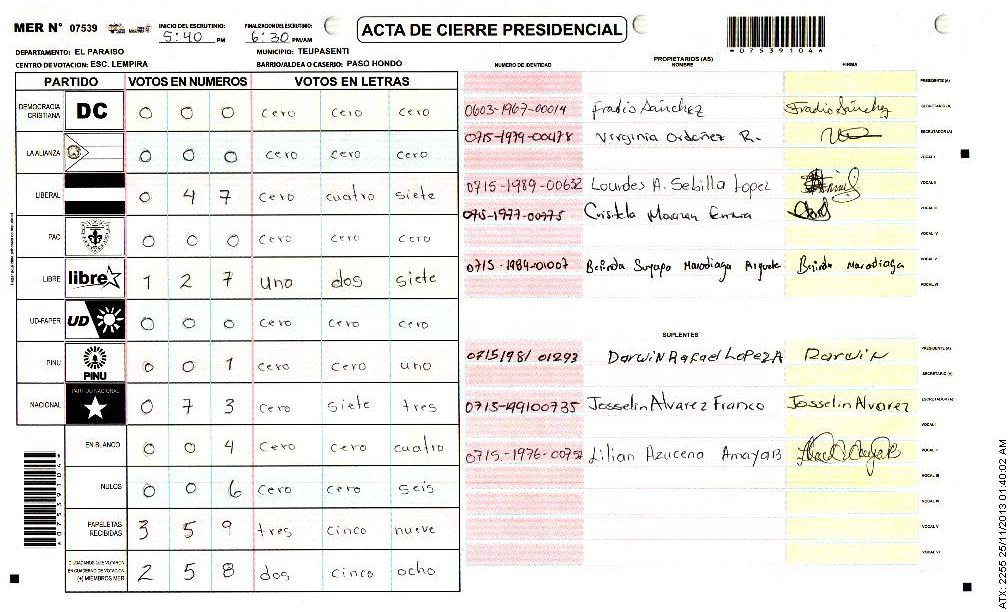 MER N° 07539 INICIO DEL ESCRUTINIO: 5:40 PM FINALIZACION DEL ESCRUTINIO: 6:30 PM/AM ACTA DE CIERRE PRESIDENCIAL
*07539104*
DEPARTAMENTO: EL PARAISO MUNICIPIO: TEUPASENTI
CENTRO DE VOTACION: ESC. LEMPIRA BARRIO/ALDEA O CASERIO: PASO HONDO
PARTIDO VOTOS EN NUMEROS VOTOS EN LETRAS
DEMOCRACIA CRISTIANA DC 0 0 0 cero cero cero
LA ALIANZA 0 0 0 cero cero cero
LIBERAL 0 4 7 cero cuatro siete
PAC 0 0 0 cero cero cero
LIBRE libre 1 2 7 uno dos siete
UD-FAPER UD 0 0 0 cero cero cero
PINU PINU 0 0 1 cero cero uno
NACIONAL PARTIDO NACIONAL 0 7 3 cero siete tres
EN BLANCO 0 0 4 cero cero cuatro
NULOS 0 0 6 cero cero seis
PAPELETAS RECIBIDAS 3 5 9 tres cinco nueve
CIUDADANOS QUE VOTARON EN CUADERNO DE VOTACION (+) MIEMBROS MER 2 5 8 dos cinco ocho
*07539104*
PROPIETARIOS (AS)
NUMERO DE IDENTIDAD NOMBRE FIRMA
PRESIDENTE (A)
0603-1967-00014 Fradio Sánchez Fradio Sánchez SECRETARIO (A)
0715-1979-00478 Virginia Ordoñez R. ESCRUTADOR (A)
VOCAL I
0715-1989-00632 Lourdes A. Sebilla Lopez VOCAL II
0715-1977-00775 Cristela VOCAL III
VOCAL IV
0715-1984-01007 Maradiaga Maradiaga VOCAL V
VOCAL VI
SUPLENTES
07151981 01293 Darwin Rafael Lopez A Darwin PRESIDENTE (A)
SECRETARIO (A)
0715-199100735 Josselin Alvarez Franco Josselin Alvarez ESCRUTADOR (A)
VOCAL I
0715-1976-00752 Lilian Azucena Amaya B VOCAL II
VOCAL III
VOCAL IV
VOCAL V
VOCAL VI
ATX: 2255 25/11/2013 01:40:02 AM